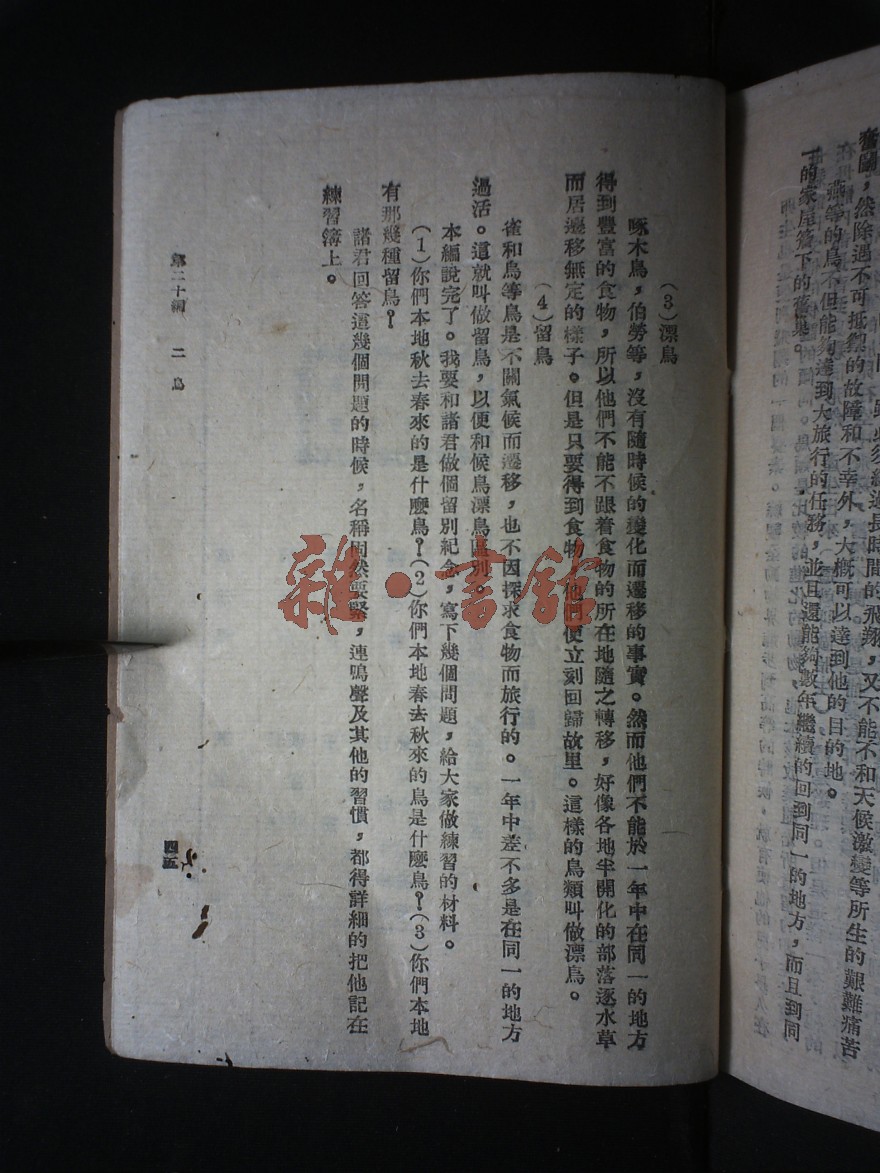 奮鬭，然除過不可抵禦的故障和不幸外，大概可以達到他的目的地。
燕等的鳥不但能夠達到大旅行的任務，並且還能夠數年繼續的回到同一的地方，而且到同
一的家屋簷下的舊巢。
（3）漂鳥
啄木鳥，伯勞等，沒有隨時候的變化而遷移的事實。然而他們不能於一年中在同一的地方
得到豐富的食物，所以他們不能不跟着食物的所在地隨之轉移，好像各地半開化的部落逐水草
而居遷移無定的樣子。但是只要得到食物，他們便立刻回歸故里。這樣的鳥類叫做漂鳥。
（4）留鳥
雀和烏等鳥是不關氣候而遷移，也不因探求食物而旅行的。一年中差不多是在同一的地方
過活。這就叫做留鳥，以便和候鳥漂鳥區別。
本編說完了。我要和諸君做個留別紀念，寫下幾個問題，給大家做練習的材料。
（1）你們本地秋去春來的是什麼鳥？（2）你們本地春去秋來的鳥是什麼鳥？（3）你們本地
有那幾種留鳥？
諸君回答這幾個問題的時候，名稱固然要緊，連鳴聲及其他的習慣，都得詳細的把他記在
練習簿上。
第二十編　二　鳥
四五
雜·書館